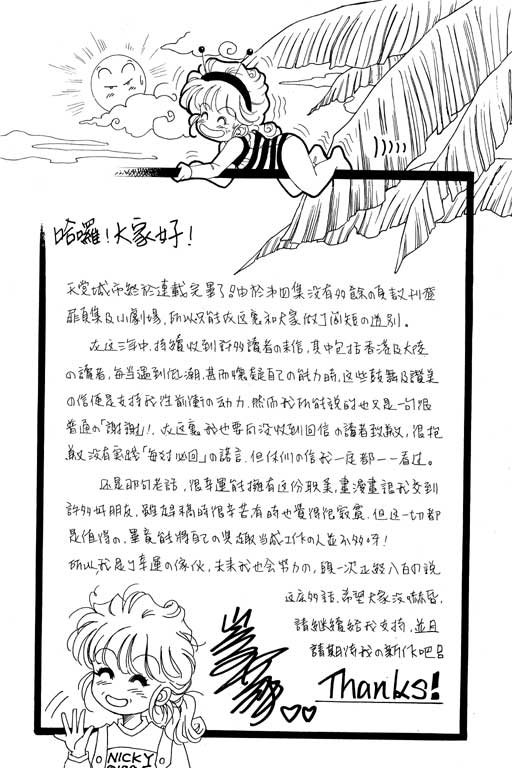 哈囉!大家好!
天堂城市終於連載完畢了。由於第四集沒有多餘的頁數刊登
扉頁集及小劇場,所以只能在這裏和大家做個簡短的道別。
在這三年中,持續收到許多讀者的來信,其中包括香港及大陸
的讀者,每當遇到低潮,甚而懷疑自己的能力時,這些鼓舞及讚美
的信便是支持我往前衝的动力。然而我所能說的也只是一句很
普通的「謝謝」!在這裏我也要向沒收到回信的讀者致歉,很抱
歉沒有實踐「每封必回」的諾言,但你們的信我一定都一一看过。
還是那句老話,很幸運能擁有這份職業,畫漫畫讓我交到
許多好朋友,雖趕稿時很辛苦有時也覺得很寂寞,但這一切都
是值得的,畢竟能將自己的興趣当成工作的人並不多呀!
所以,我是个幸運的傢伙,未來我也会努力的,頭一次正經八百的說
這麼多話,希望大家沒嚇昏,
請繼續給我支持,並且
請期待我的新作吧。
Thanks!
NICKY